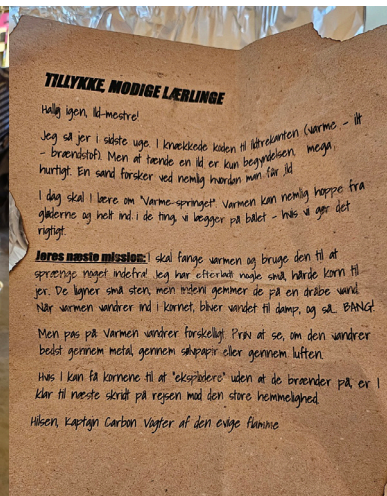 TILLYKKE, MODIGE LÆRLINGE
Hallo igen, Ild-mestre!
Jeg så jer i sidste uge. I knækkede koden til Ildtrekanten (varme - ilt
- brændstof). Men at tænde en ild er kun begyndelsen. mega
hurtigt. En sand forsker ved nemlig hvordan man får ild
I dag skal I lære om "Varme-springet". Varmen kan nemlig hoppe fra
gløderne og helt ind i de ting, vi lægger på bålet - hvis vi gør det
rigtigt.
Jeres næste mission: I skal fange varmen og bruge den til at
sprænge noget indefra! Jeg har efterladt nogle små, hårde korn til
jer. De ligner små sten, men indeni gemmer de på en dråbe vand.
Når varmen vandrer ind i kornet, bliver vandet til damp, og så... BANG!
Men pas på: Varmen vandrer forskelligt. Prøv at se, om den vandrer
bedst gennem metal, gennem sølvpapir eller gennem luften.
Hvis I kan få kornene til at "eksplodere" uden at de brænder på, er I
klar til næste skridt på rejsen mod den store hemmelighed.
Hilsen, Kaptajn Carbon Vogter af den evige flamme